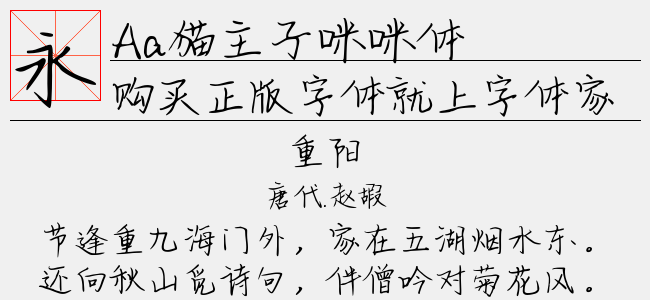 永
Aa猫主子咪咪体
购买正版字体就上字体家
重阳
唐代.赵嘏
节逢重九海门外，家在五湖烟水东。
还向秋山觅诗句，伴僧吟对菊花风。